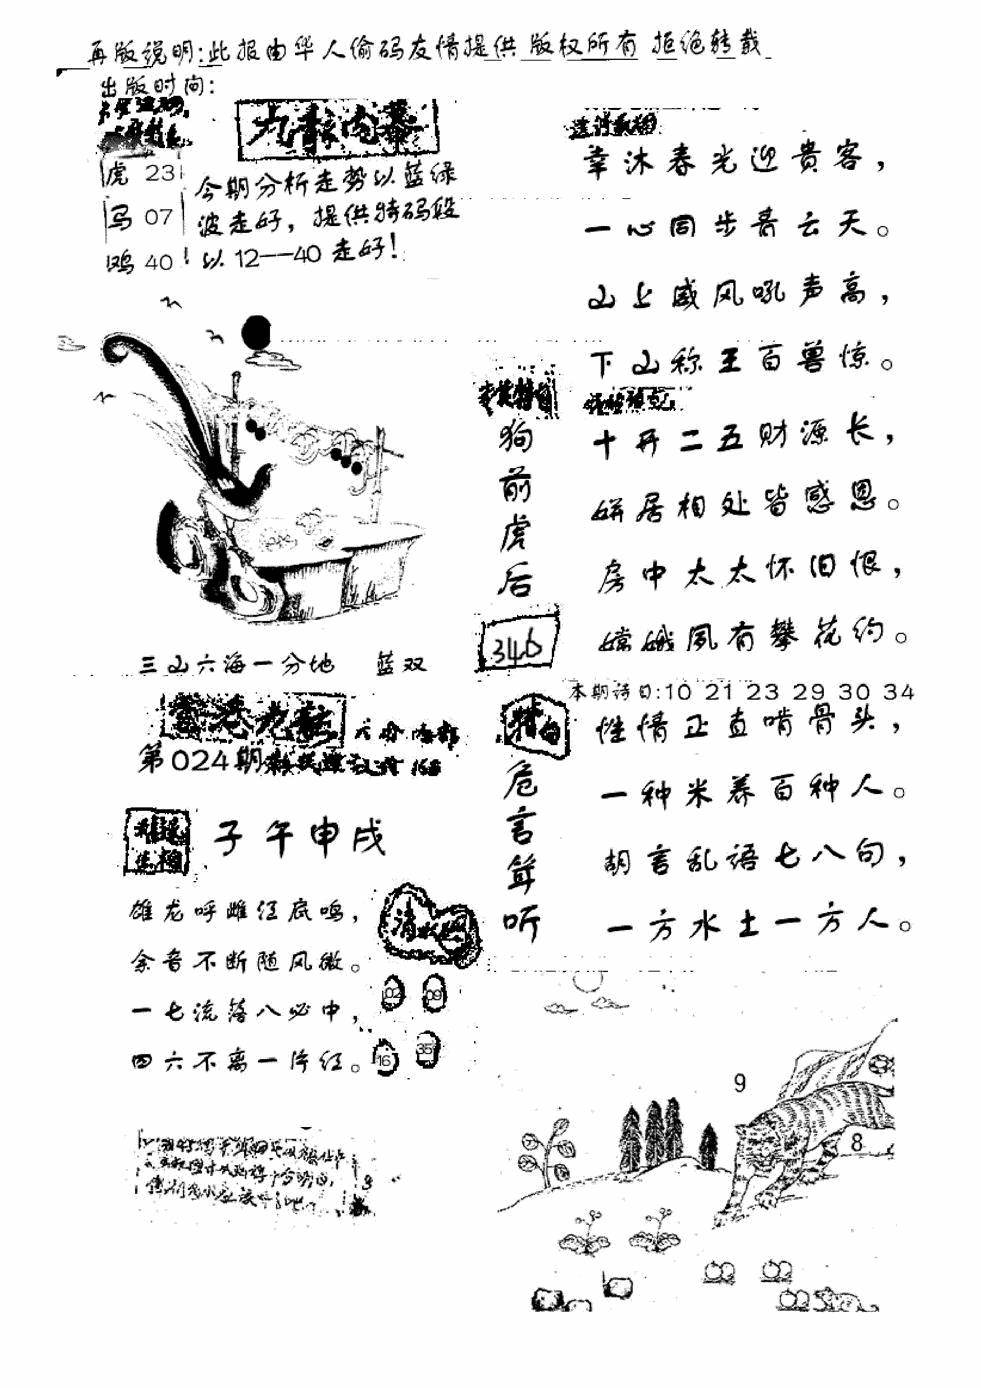 再版说明:此报由华人偷码友情提供 版权所有 拒绝转载
出版时间:
九龍内幕
虎 23
马 07
鸡 40
今期分析走势以蓝绿
波走好，提供特码段
以12—40走好!
幸沐春光迎贵客，
一心同步青云天。
山上威风吼声高，
下山称王百兽惊。
狗前虎后
346
十开二五财源长，
姘居相处皆感恩。
房中太太怀旧恨，
嫦娥夙有攀花约。
本期诗日:10 21 23 29 30 34
三山六海一分地 蓝双
香港九龍
第024期
子午申戌
雄龙呼雌径底鸣，
余音不断随风微。
一七流落八必中，
四六不离一片红。
02 09
16 35
特
危言耸听
性情正直啃骨头，
一种米养百种人。
胡言乱语七八句，
一方水土一方人。
9
8